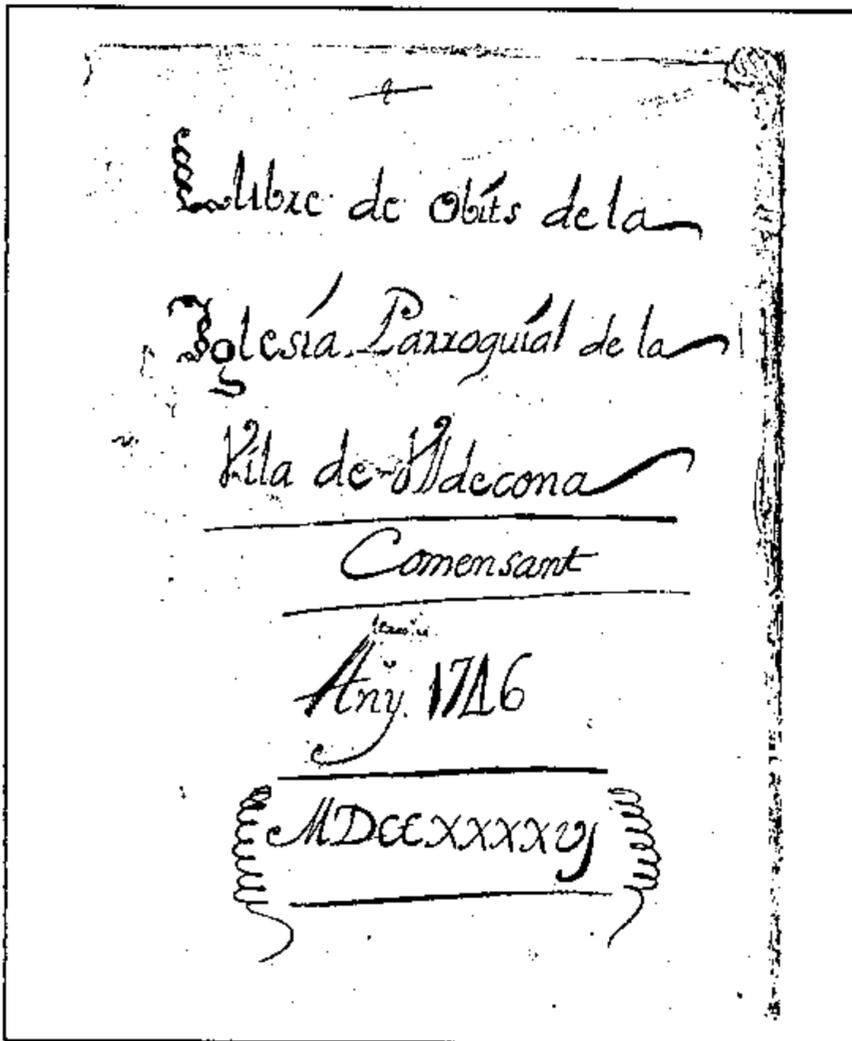 Llibre de Obits de la
Iglesia Parroquial de la
Vila de Vlldecona
Comensant
Any 1746
MDCCXXXXVj